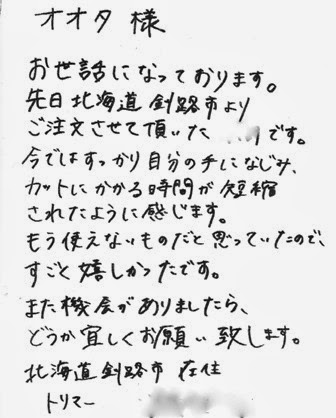 オオタ 様
お世話になっております。
先日 北海道 釧路市より
ご注文させて頂いた です。
今ではすっかり自分の手になじみ、
カットにかかる時間が 短縮
されたように感じます。
もう使えないものだと思っていたので、
すごく嬉しかったです。
また機会がありましたら、
どうか宜しくお願い致します。
北海道釧路市 在住
トリマー